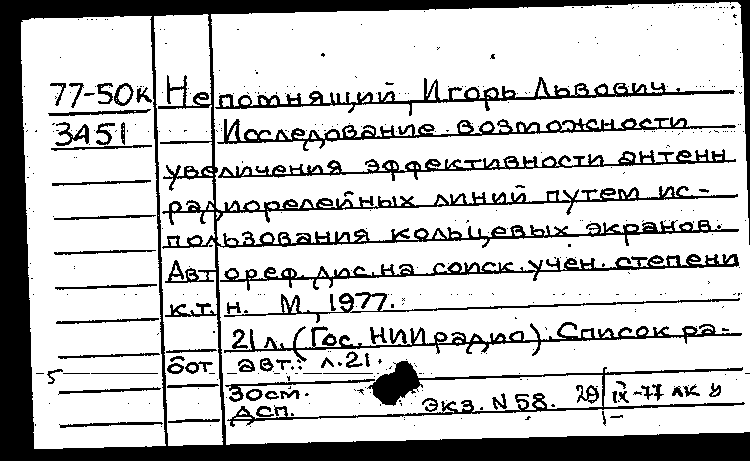 77-50к Непомнящий, Игорь Львович.
3451 Исследование возможности
увеличения эффективности антенн
радиорелейных линий путем ис-
пользования кольцевых экранов.
Автореф. дис. на соиск. учен. степени
к.т.н. М., 1977.
21 л. (Гос. НИИ радио). Список ра-
бот авт.: л.21.
5
30 см.
ДСП. экз. N 58. 29/IX-77